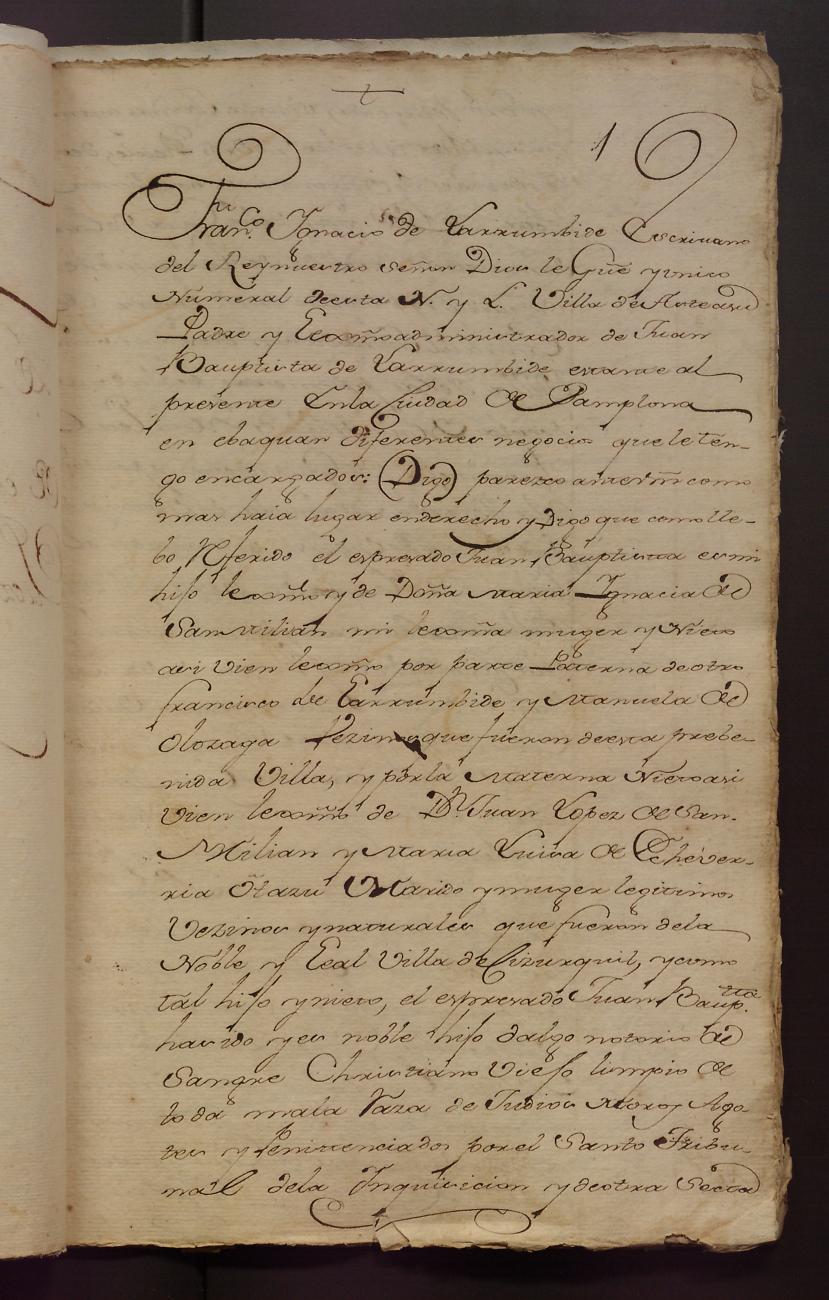 1
Fran.co Ygnacio de Larrumbide Escrivano
del Rey nuestro Señor Dios le Gūe y unico
Numeral de esta N. y L. Villa de Asteasu
Padre y Lexmō administrador de Juan
Bauptista de Larrumbide estante al
presente En la Ciudad de Pamplona
en ebaquar diferentes negocios que le ten-
go encargados: Digo parezco ante Vm̄ como
mas haia lugar en derecho y Digo que como lle-
bo Referido el espresado Juan Bauptista es mi
hijo lexm̄o y de Doña Maria Ygnacia de
San Milian mi lexm̄a muger y Nieto
asi vien lexm̄o por parte Paterna de otro
francisco de Larrumbide y Manuela de
Olozaga Vezinos que fueron de esta prebe-
nida Villa, y por la Materna Nieto asi
vien lexm̄o de Dn. Juan Lopez de San-
Milian y Maria Luisa de Echever-
ria Otazu Marido y muger legitimos
Vezinos y naturales que fueron de la
Noble y Leal Villa de Cizurquil, y como
tal hijo y nieto, el espresado Juan Baup.tta
ha sido y es noble hijo dalgo notorio de
Sangre Christiano Viejo limpio de
toda mala Raza de Judios Moros Ago-
tes y Penitenciados por el Santo Tribu-
nal de la Inquisicion y de otra Secta